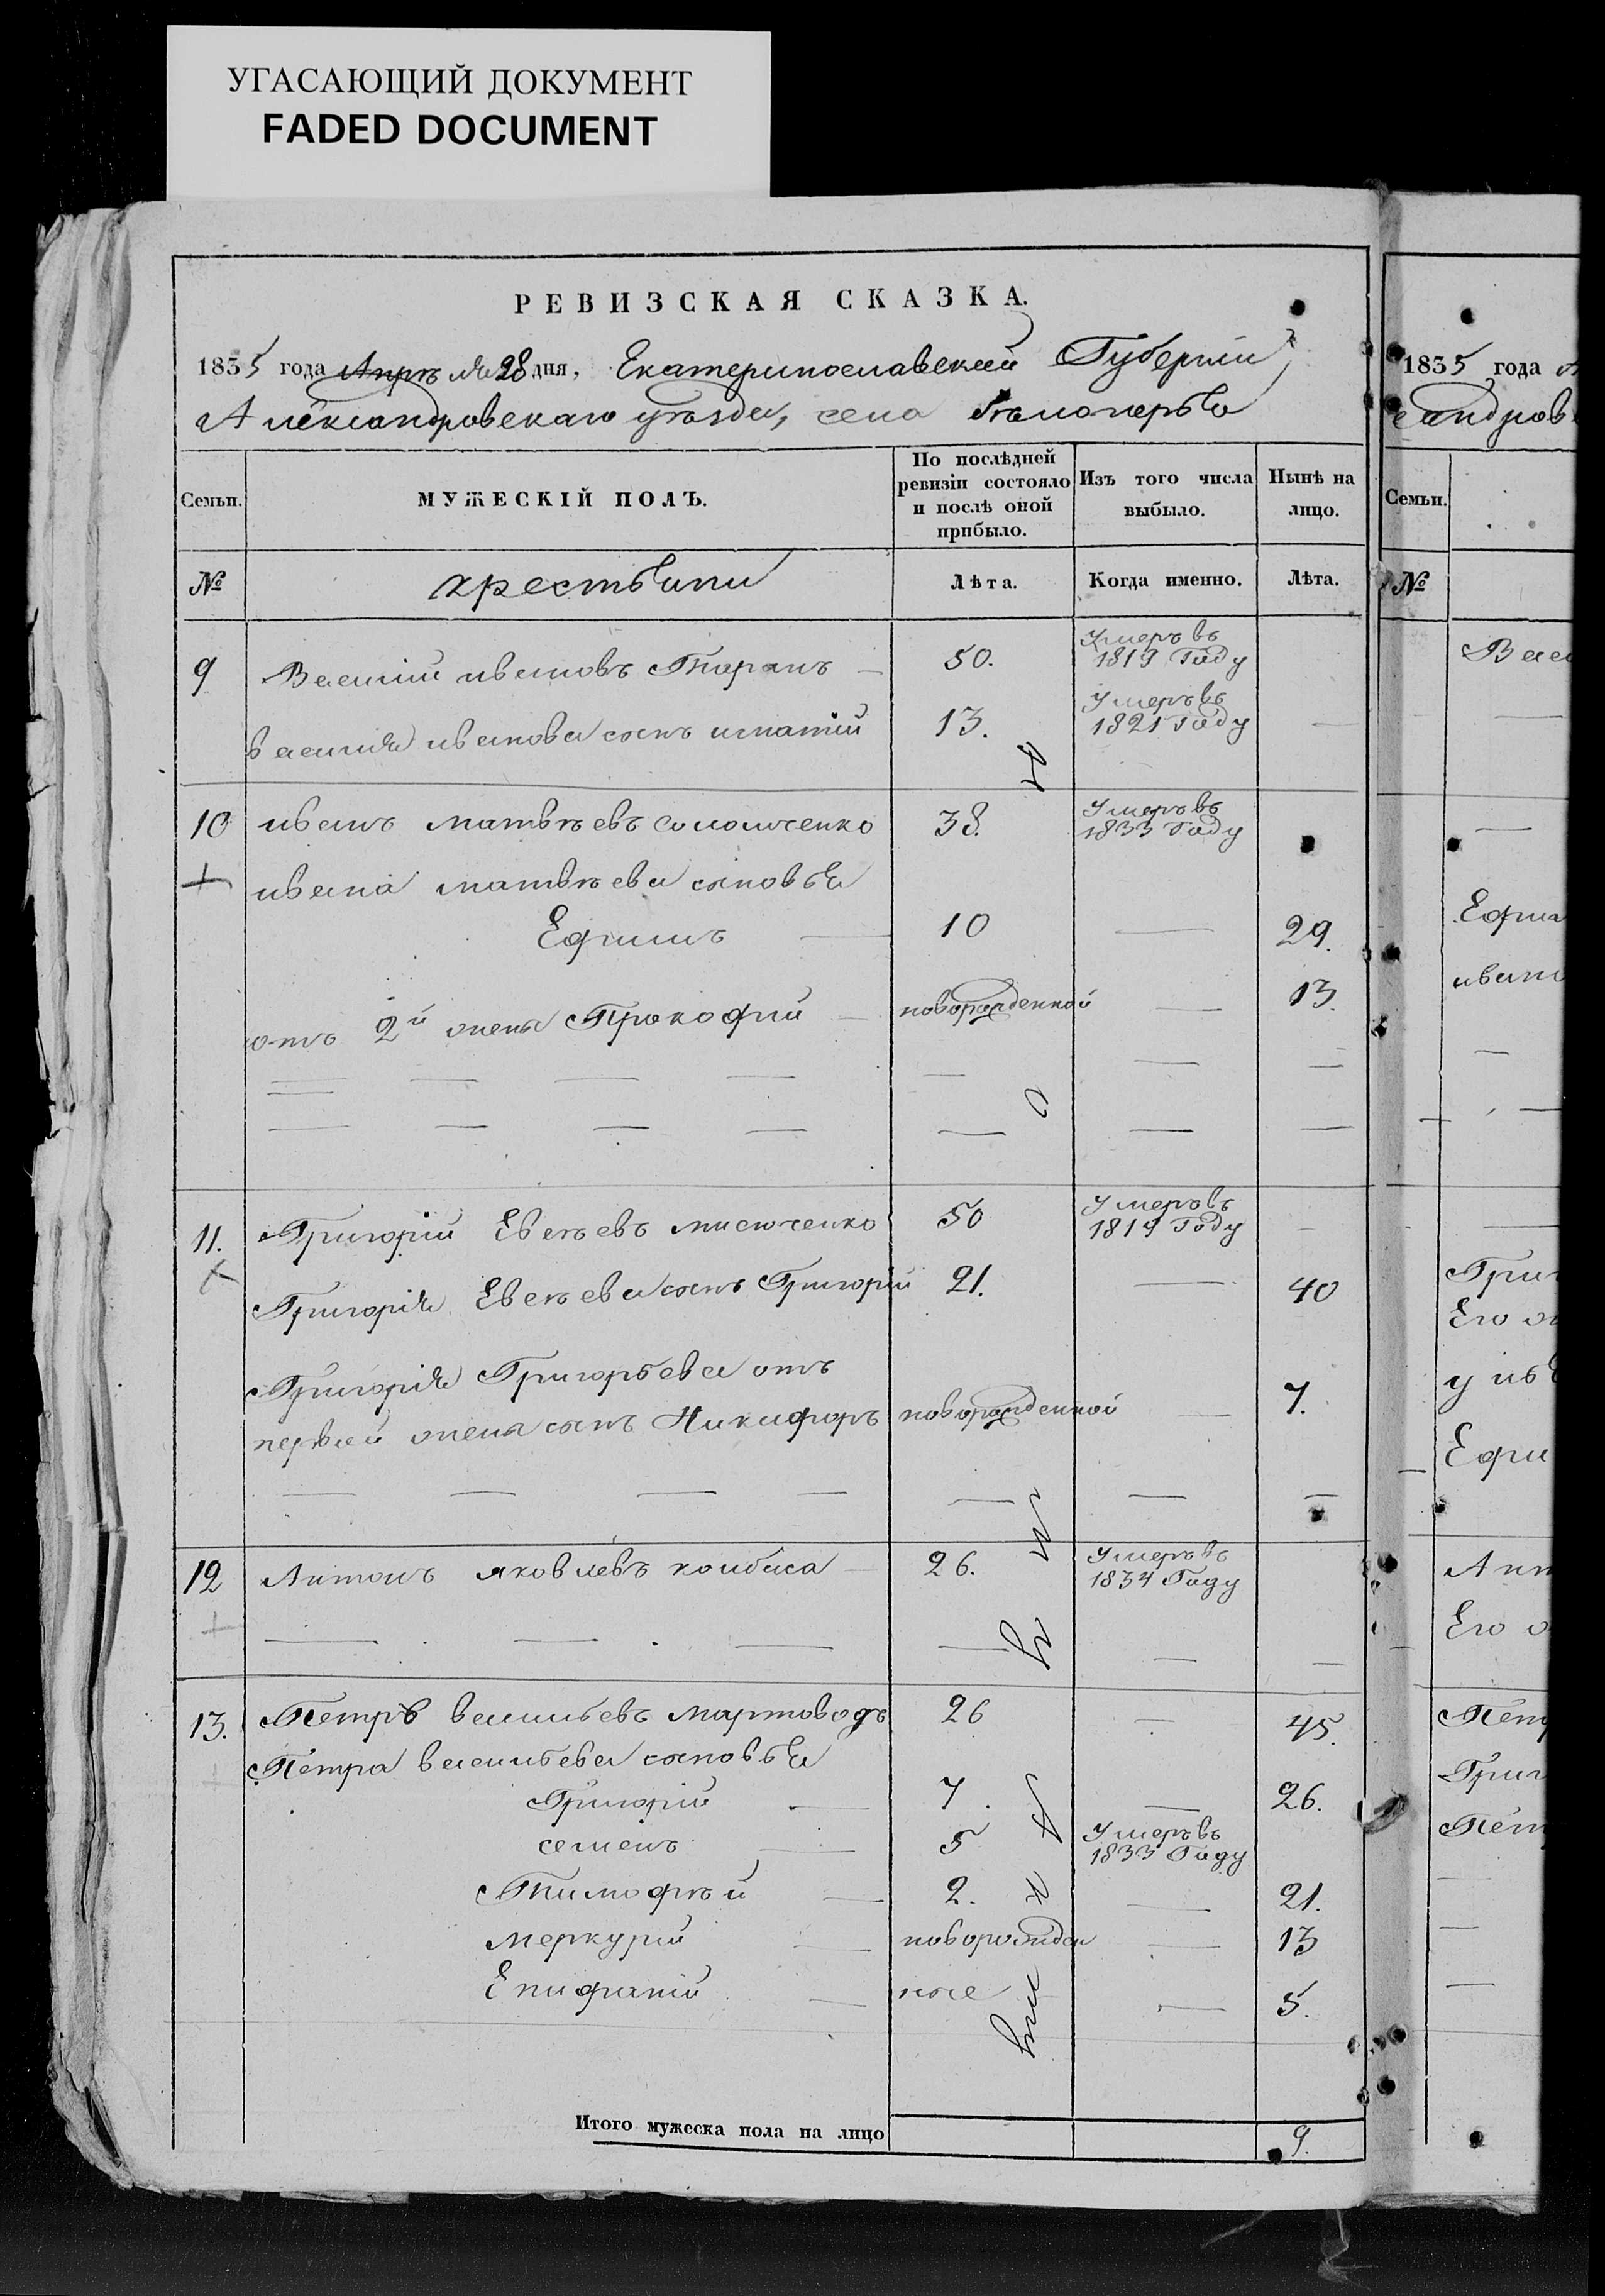 УГАСАЮЩИЙ ДОКУМЕНТ
FADED DOCUMENT
РЕВИЗСКАЯ СКАЗКА.
1835 года Апрѣля 28 дня, Екатеринославской Губерніи,
Александровскаго уѣзда, села Бѣлогорья
Семьи.
МУЖЕСКІЙ ПОЛЪ.
По послѣдней ревизіи состояло и послѣ оной прибыло.
Изъ того числа выбыло.
Нынѣ на лицо.
№
крестьяни
Лѣта.
Когда именно.
Лѣта.
9 Василій ивановъ Таранъ 50. Умеръ въ 1819 Году
василія иванова сынъ игнатій 13. Умеръ въ 1821 Году
10 иванъ матвѣевъ 38. Умеръ въ 1833 Году
ивана матвѣева сыновья
Ефимъ 10 29.
отъ 2й жены Прокофий новорожденной 13.
11. Григорій Евсѣевъ мисюченко 50 Умеръ въ 1819 Году
Григорія Евсѣева сынъ Григорій 21. 40
Григорія Григорьева отъ
первой жены сынъ Никифоръ новорожденной 7.
12 Антонъ яковлевъ колбаса 26. Умеръ въ 1834 Году
13. Петръ васильевъ мартоводъ 26 45.
Петра васильева сыновья
Григорій 7. 26.
семенъ 5 Умеръ въ 1833 Году
Тимофѣй 2. 21.
меркурій новорожден 13
Епифаній ные 5.
Итого мужеска пола на лицо 9.
1835 года
Семьи.
№